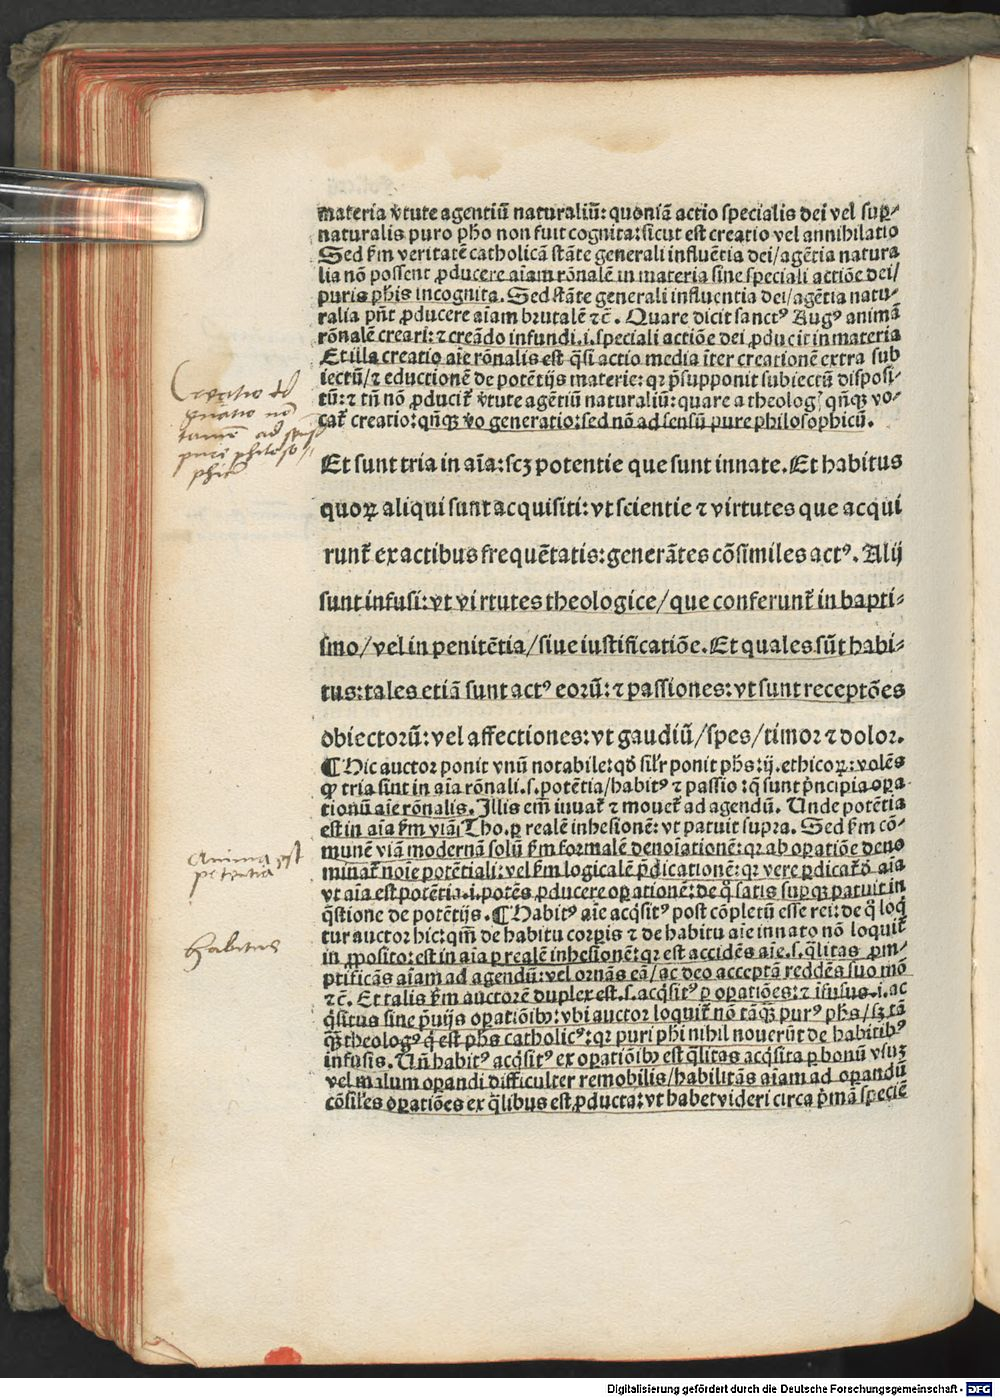 materia v̾tute agentiū naturaliū: quoniā actio specialis dei vel sup̱-
naturalis puro ph̄o non fuit cognita: sicut est creatio vel annihilatio
Sed ẜm veritatē catholicā stāte generali influētia dei/ agētia natura
lia nō possent ꝓducere aīam rōnalē in materia sine speciali actiōe dei/
puris ph̄is incognita. Sed stāte generali influentia dei/ agētia natu-
ralia pn̄t ꝓducere aīam brutalē ⁊c̄. Quare dicit sanctꝰ Augꝰ animā
rōnalē creari: ⁊ creādo infundi .i. speciali actiōe dei ꝓducit in materia
Et illa creatio aīe rōnalis est q̄si actio media īter creationē extra sub
iectū/ ⁊ eductionē de potētijs materie: qꝛ p̄supponit subiectū disposi-
tū: ⁊ tn̄ nō ꝓducit̄ v̾tute agētiū naturaliū: quare a theologꝭ qn̄qꝫ vo-
cat̄ creatio: qn̄qꝫ v̊o generatio: sed nō ad sensū pure philosophicū.
Creatio
gn̄atio nō
tamē ad sensū
pure philoso//
phicū
Et sunt tria in aīa: scꝫ potentie que sunt innate. Et habitus
quoꝝ aliqui sunt acquisiti: vt scientie ⁊ virtutes que acqui
runt̄ ex actibus frequētatis: generātes cōsimiles actꝰ. Alij
sunt infusi: vt virtutes theologice/ que conferunt̄ in bapti-
smo/ vel in penitētia/ siue iustificatiōe. Et quales sūt habi-
tus: tales etiā sunt actꝰ eoꝝū: ⁊ passiones: vt sunt receptōes
obiectorū: vel affectiones: vt gaudiū/ spes/ timor ⁊ dolor.
¶ Hic auctor ponit vnū notabile: qd̄ sil̄r ponit ph̄s: ij. ethicoꝝ: volēs
ꝙ tria sint in aīa rōnali .s. potētia/ habitꝰ ⁊ passio: q̄ sunt p̄ncipia oꝑa
tionū aīe rōnalis. Illis em̄ iuuat̄ ⁊ mouet̄ ad agendū. Unde potētia
est in aīa ẜm viā Tho. ꝑ realē inhesionē: vt patuit supra. Sed ẜm cō-
munē viā modernā solū ẜm formalē denoīationē: qꝛ ab oꝑatiōe deno
minat̄ noīe potētiali: vel ẜm logicalē p̄dicationē: qꝛ vere p̄dicat̄ d̄ aīa
vt aīa est potētia .i. potēs ꝓducere oꝑationē: de q̄ satis supqꝫ patuit in
q̄stione de potētijs. ¶ Habitꝰ aīe acq̄sitꝰ post cōpletū esse rei: de q̄ loq̄
tur auctor hic: qm̄ de habitu corꝑis ⁊ de habitu aīe innato nō loquit̄
in ꝓposito: est in aīa ꝑ realē inhesionē: qꝛ est accidēs aīe .s. q̄litas ꝓm-
ptificās aīam ad agendū: vel ornās eā/ ac deo acceptā reddēs suo mō
⁊c̄. Et talis ẜm auctorē duplex est .s. acq̄sitꝰ ꝑ oꝑatiōes: ⁊ īfusus .i. ac
q̄situs sine p̄uijs oꝑatiōibꝰ: vbi auctor loquit̄ nō tāqꝫ purꝰ ph̄s/ sꝫ tā
qꝫ theologꝰ q̄ est ph̄s catholicꝰ: qꝛ puri ph̄i nihil nouerūt de habitibꝰ
infusis. Un̄ habitꝰ acq̄sitꝰ ex oꝑatiōibꝰ est q̄litas acq̄sita ꝑ bonū vsuꝫ
vel malum oꝑandi difficulter remobilis/ habilitās aīam ad oꝑandū
cōsil̄es oꝑatiōes ex q̄libus est ꝓducta: vt habet videri circa p̄mā speciē
Anima est
potentia
Habitus
Digitalisierung gefördert durch die Deutsche Forschungsgemeinschaft - DFG